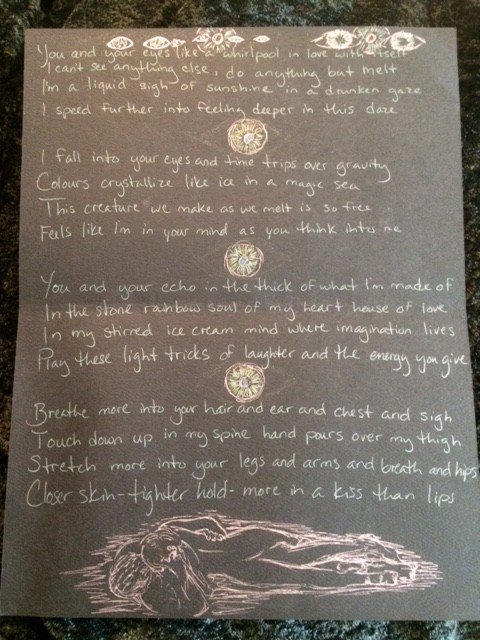 You and your eyes like a whirlpool in love with itself
I can't see anything else, do anything but melt
I'm a liquid sigh of sunshine in a drunken gaze
I speed further into feeling deeper in this daze
I fall into your eyes and time trips over gravity
Colours crystallize like ice in a magic sea
This creature we make as we melt is so free
Feels like I'm in your mind as you think into me
You and your echo in the thick of what I'm made of
In the stone rainbow soul of my heart house of love
In my stirred ice cream mind where imagination lives
Play these light tricks of laughter and the energy you give
Breathe more into your hair and ear and chest and sigh
Touch down up in my spine hand pours over my thigh
Stretch more into your legs and arms and breath and hips
Closer skin-tighter hold-more in a kiss than lips